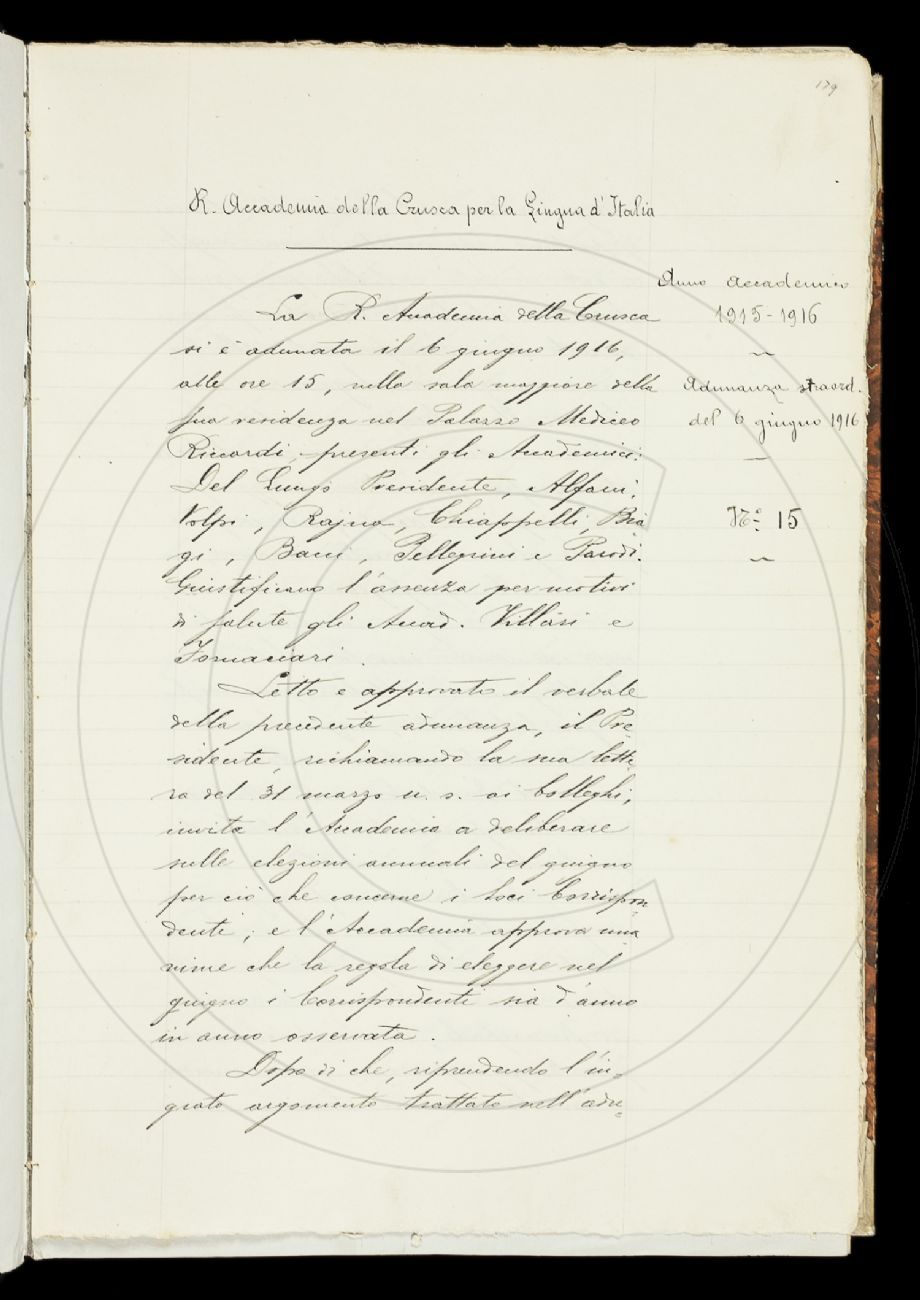 179
R. Accademia della Crusca per la Lingua d'Italia
Anno accademico
1915-1916
Adunanza straord.
del 6 giugno 1916
N.º 15
La R. Accademia della Crusca
si è adunata il 6 giugno 1916,
alle ore 15, nella sala maggiore della
sua residenza nel Palazzo Mediceo
Riccardi, presenti gli Accademici:
Del Lungo Presidente, Alfani,
Volpi, Rajna, Chiappelli, Bia
gi, Bacci, Pellegrini e Parodi.
Giustificano l'assenza per motivi
di salute gli Accad. Villari e
Fornaciari.
Letto e approvato il verbale
della precedente adunanza, il Pre=
sidente, richiamando la sua lette=
ra del 31 marzo u. s. ai Colleghi,
invita l'Accademia a deliberare
sulle elezioni annuali del giugno
per ciò che concerne i Soci Corrispon=
denti; e l'Accademia approva una
nime che la regola di eleggere nel
giugno i Corrispondenti sia d'anno
in anno osservata.
Dopo di che, riprendendo l'in=
grato argomento trattato nell'adu=